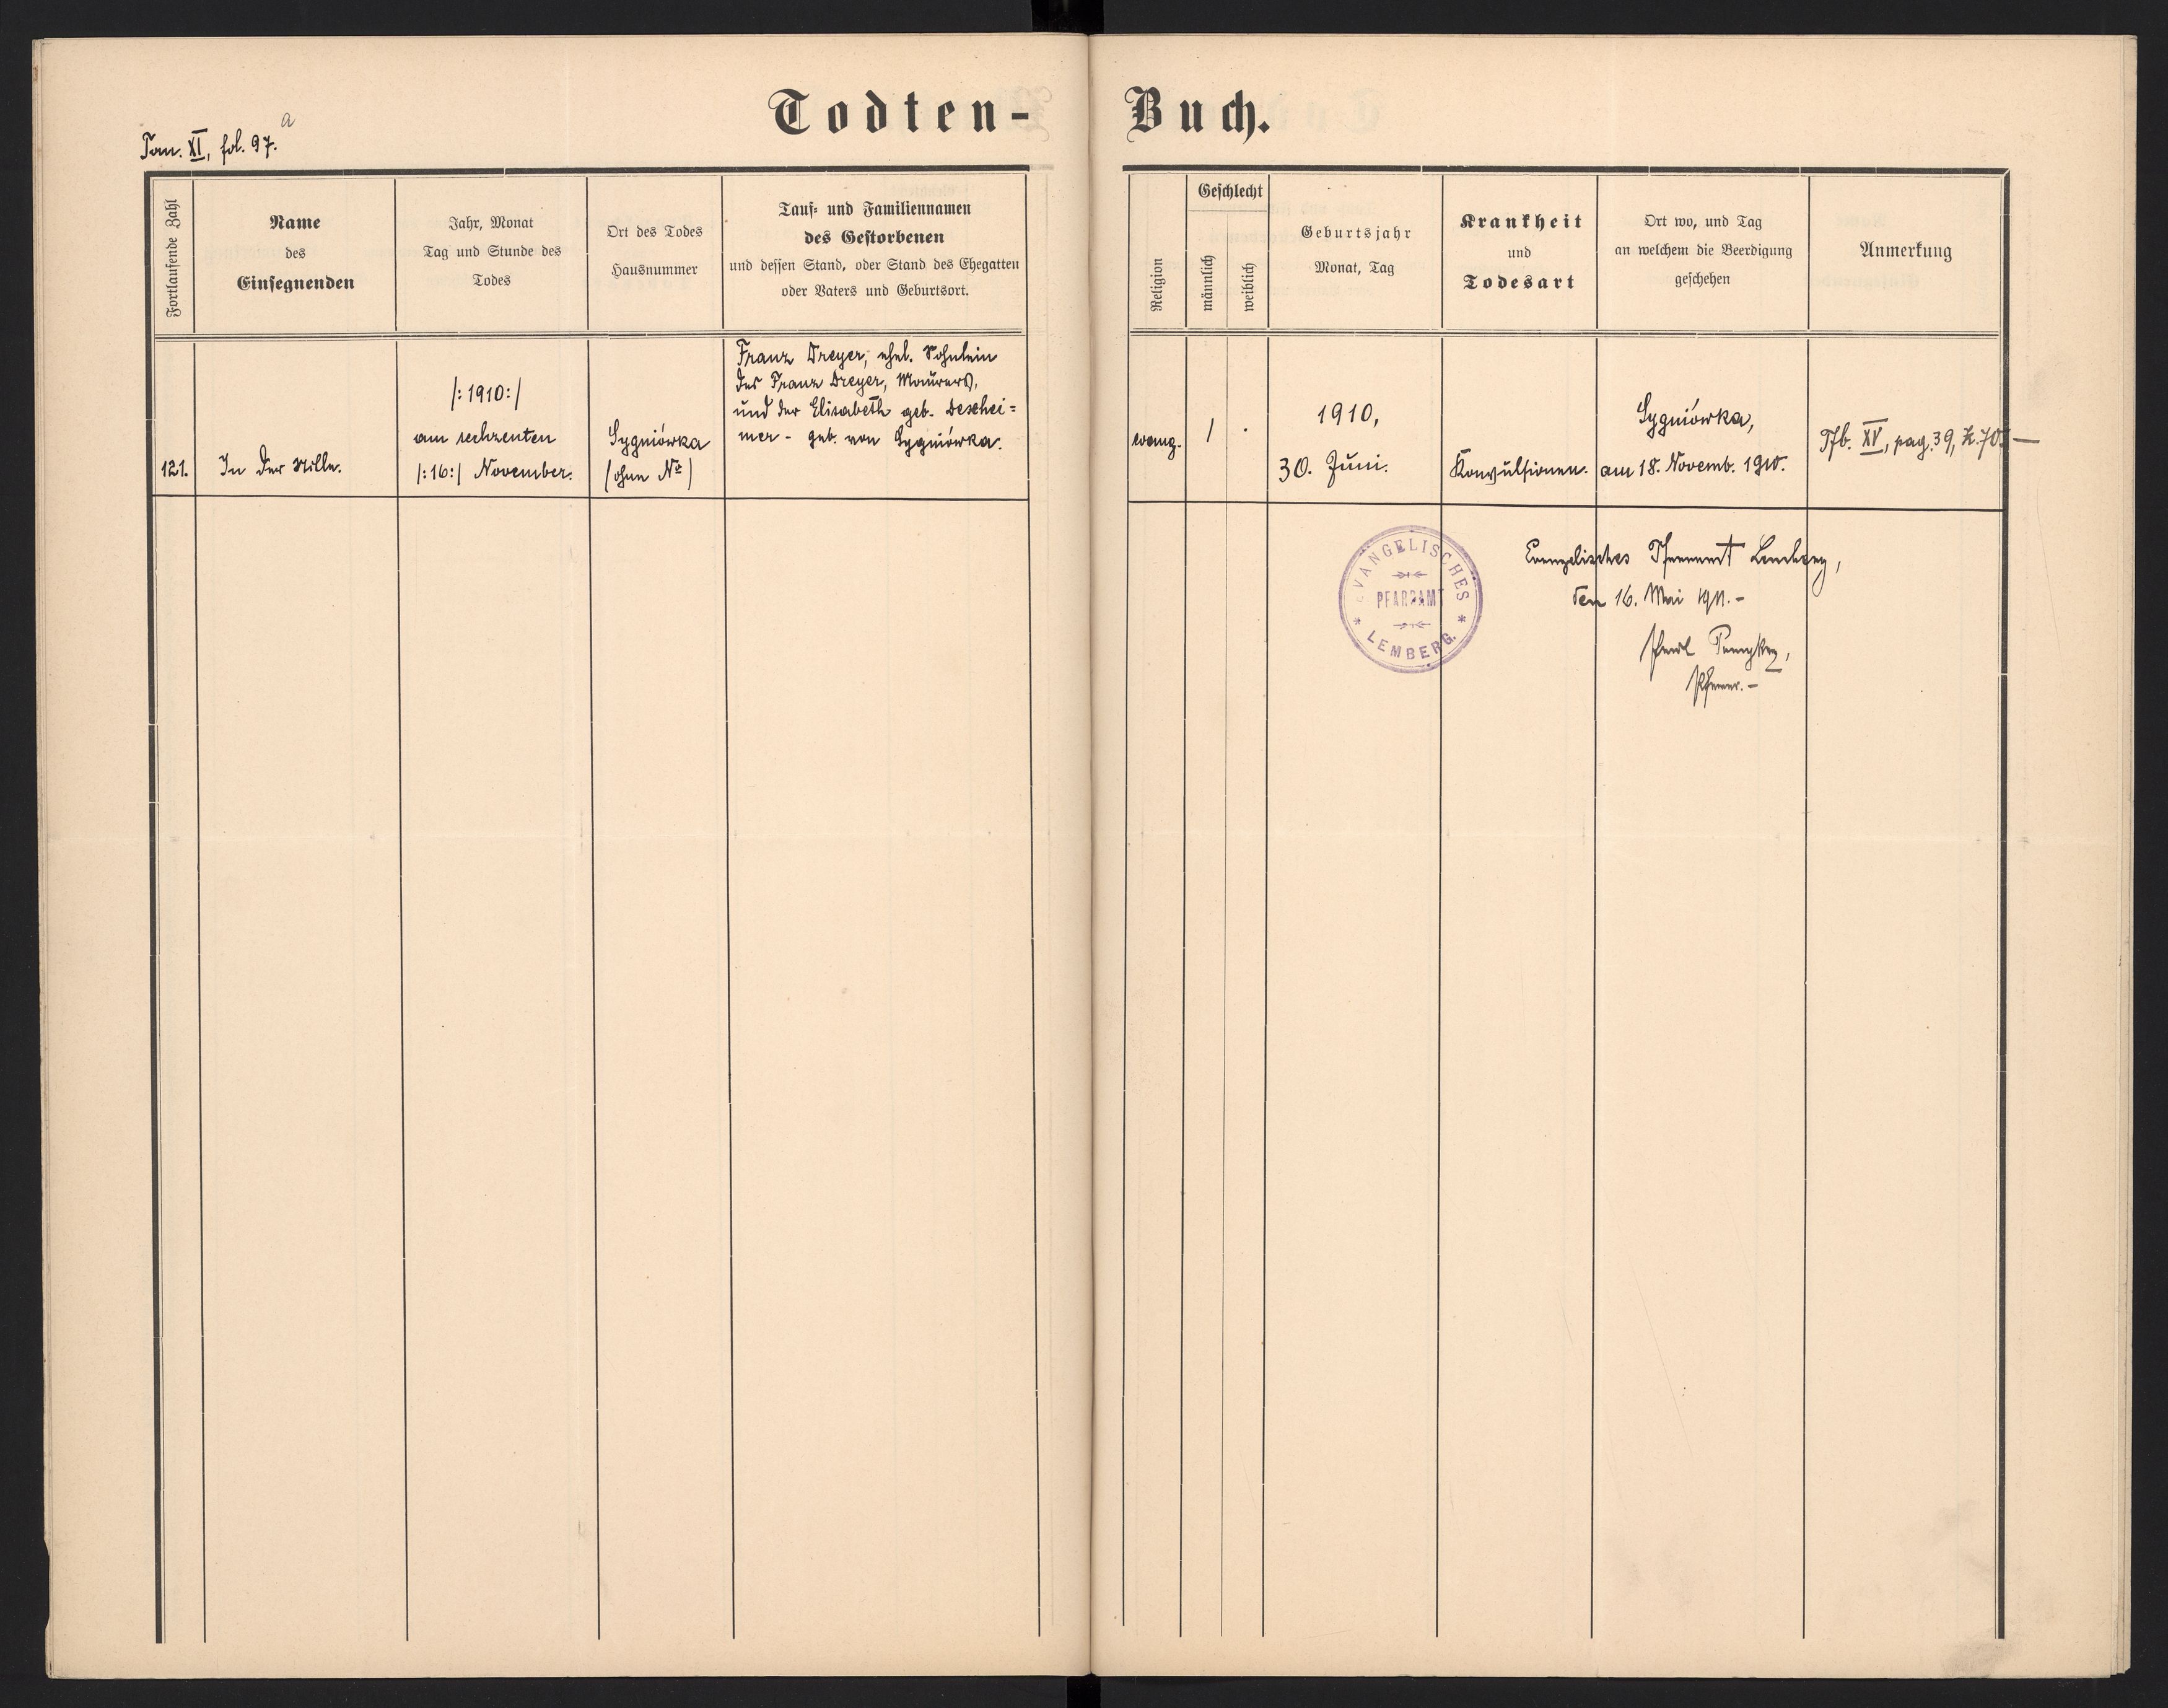 Todten-Buch.
Tom. XI, fol. 97.
a
Fortlaufende Zahl
Name
des
Einsegnenden
Jahr, Monat
Tag und Stunde des
Todes
Ort des Todes
Hausnummer
Tauf- und Familiennamen
des Gestorbenen
und dessen Stand, oder Stand des Ehegatten
oder Vaters und Geburtsort.
Religion
Geschlecht
männlich
weiblich
Geburtsjahr
Monat, Tag
Krankheit
und
Todesart
Ort wo, und Tag
an welchem die Beerdigung
geschehen
Anmerkung
121.
In der Stille.
|:1910:|
am sechzenten
|:16:| November.
Sygniówka
(ohne No)
Franz Dreyer, ehel. Sohnlein
des Franz Dreyer, Maurers,
und der Elisabeth geb. Deschei=
mer - geb. von Sygniówka.
evang.
1
.
1910,
30. Juni.
Konvulsionen.
Sygniówka,
am 18. Novemb. 1910.
Tfb. XV, pag. 39, Z. 70. —
EVANGELISCHES
PFARRAMT
* LEMBERG. *
Evangelisches Pfarramt Lemberg,
den 16. Mai 1911.-
Pfarrer.-